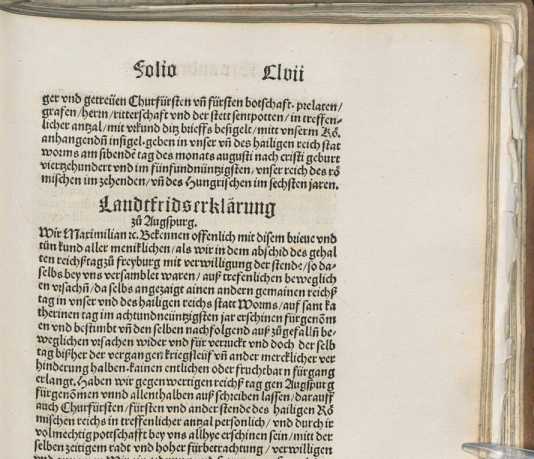 Folio Clvii
ger vnd getreüen Churfürsten vñ fürsten botschaft. prelaten/
grafen/herrn/ritterschaft vnd der stett sentpotten/in treffen-
licher antzal/mit vrkund ditz brieffs besigelt/mitt vnserm Kö.
anhangendñ insigel. geben in vnser vñ des hailigen reich stat
worms am sibendē tag des monats augusti nach cristi geburt
viertzehundert vnd im fünfundnüntzigsten/vnser reich des rö
mischen im zehenden/vñ des Hungrischen im sechsten jaren.
Landtfridserklärung
zů Augspurg.
Wir Maximilian ꝛc. Bekennen offenlich mit disem brieue vnd
tůn kund aller meniklichen/als wir in dem abschid des gehal
ten reichßtag zů freyburg mit verwilligung der stende/so da-
selbs bey vns versamblet waren/auß treffenlichen beweglich
en vrsachñ/da selbs angezaigt ainen andern gemainen reichß
tag in vnser vnd des hailigen reichs statt Worms/auf sant ka
therinen tag im achtundneüntzigsten jar erschinen fürgenōm
en vnd bestimbt vñ den selben nachfolgend auß zůgefallñ be-
weglichen vrsachen wider vnd für verruckt vnd doch der selb
tag bißher der vergangen kriegsleüf vñ ander mercklicher ver
hinderung halben kainen entlichen oder fruchtbarn fürgang
erlangt. Haben wir gegenwertigen reichß tag gen Augspurg
fürgenōmen vnnd allenthalben auß schreiben lassen/darauff
auch Churfürsten/fürsten vnd ander stende des hailigen Rö
mischen reichs in treffenlicher antzal persönlich/vnd durch ir
volmechtig pottschafft bey vns allhye erschinen sein/mit der
selben zeitigem radt vnd hoher fürbetrachtung/verwilligen